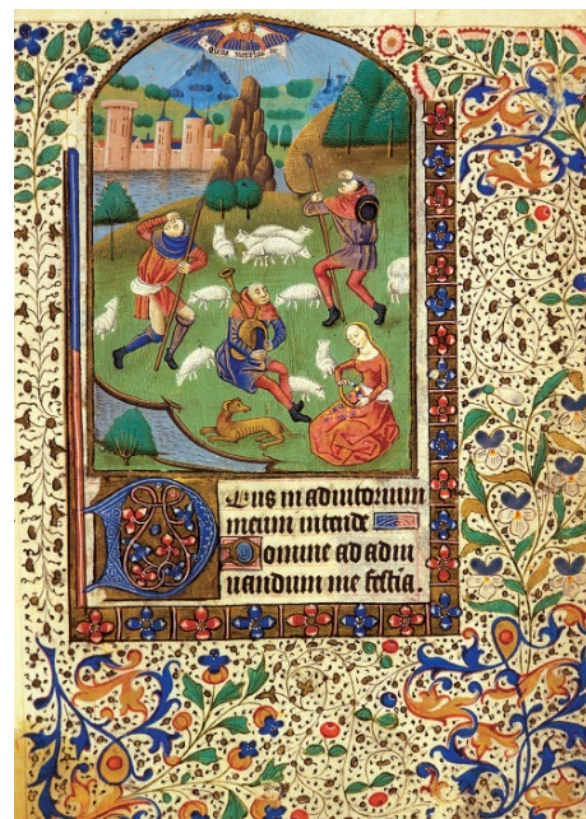 Deus in adiutorium
meum intende
Domine ad adiu
uandum me festia